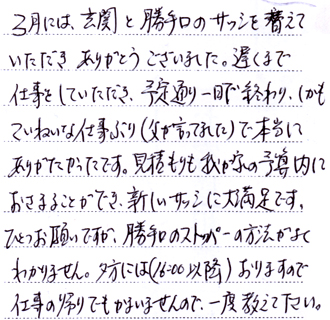 3月には、玄関と勝手口のサッシを替えて
いただきありがとうございました。遅くまで
仕事をしていただき、予定通り一日で終わり、しかも
ていねいな仕事ぶり(父が言ってました)で本当に
ありがたかったです。見積もりも我が家の予算内に
おさまることができ、新しいサッシに大満足です。
ひとつお願いですが、勝手口のストッパーの方法がよく
わかりません。夕方には(16:00以降)おりますので
仕事の帰りでもかまいませんので、一度教えて下さい。